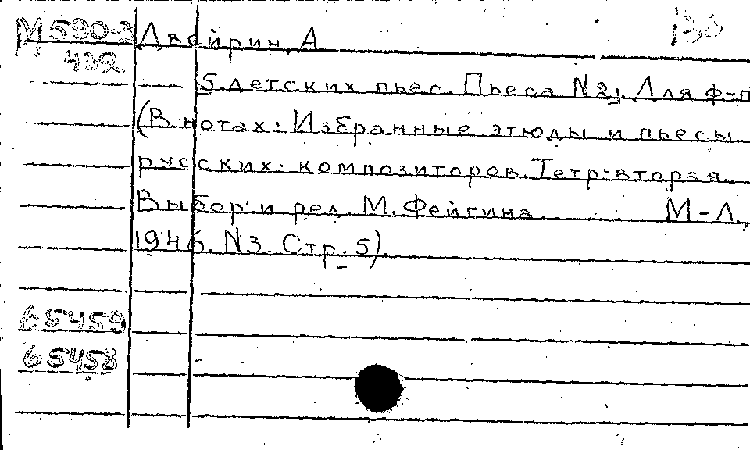 М 590-3 Двейрин, А
422
5 детских пьес. Пьеса N2, Для ф-п
(В нотах: Избранные этюды и пьесы
русских композиторов. Тетр. вторая.
Выбор и ред. М. Фейгина. М-Л,
1946. N3 Стр. 5).
65459
65458